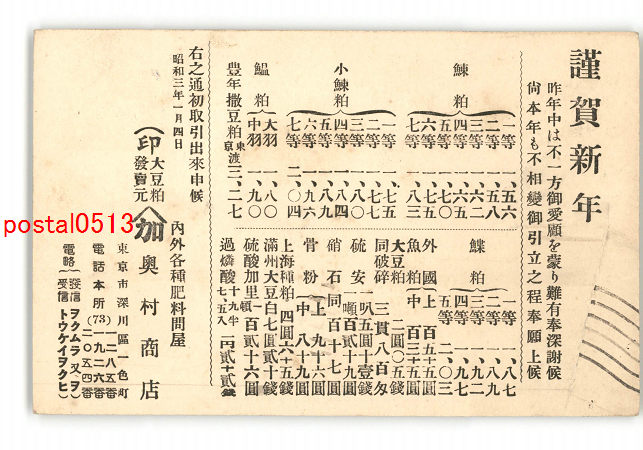 謹賀新年
昨年中は不一方御愛顧を蒙り難有奉深謝候
尙本年も不相變御引立之程奉願上候
鰊粕
一等 一、五六
二等 一、五八
三等 一、六二
四等 一、六六
五等 一、七〇
六等 一、七五
七等 一、八三
小鰊粕
一等
二等 一、七六
三等 一、八〇
四等 一、八四
五等 一、八九
六等 一、九七
七等 二、〇四
鰮粕
大羽 一、八〇
中羽 一、九〇
豊年撒豆粕 東京渡 三、二七
鰈粕
一等 一、八七
二等 一、九二
三等 一、九二
四等 一、九七
五等 二、〇三
外國魚粕
上 百五十五圓
中 百三十五圓
大豆粕 二圓〇五錢
同破碎 三貫八百匁
硫安 一叺五圓十壹錢
一噸百二十九圓
硝石 同百十七圓
骨粉
上 九十六圓
中 八十九圓
上海種粕 四圓六十五錢
滿州大豆白七圓貳十錢
硫酸加里一噸百貳十六圓
過燐酸 十九半 七五入 一円貳十貳錢
右之通初取引出來申候
昭和三年一月四日
印 大豆粕 發賣元
加 奥村商店
內外各種肥料問屋
東京市深川區一色町
電話本所(73)
一二八五番
一九二六番
二〇五四番
電略
發信 ヲクムラ 又ハ ヲ
受信 トウケイヲクヒ
postal0513